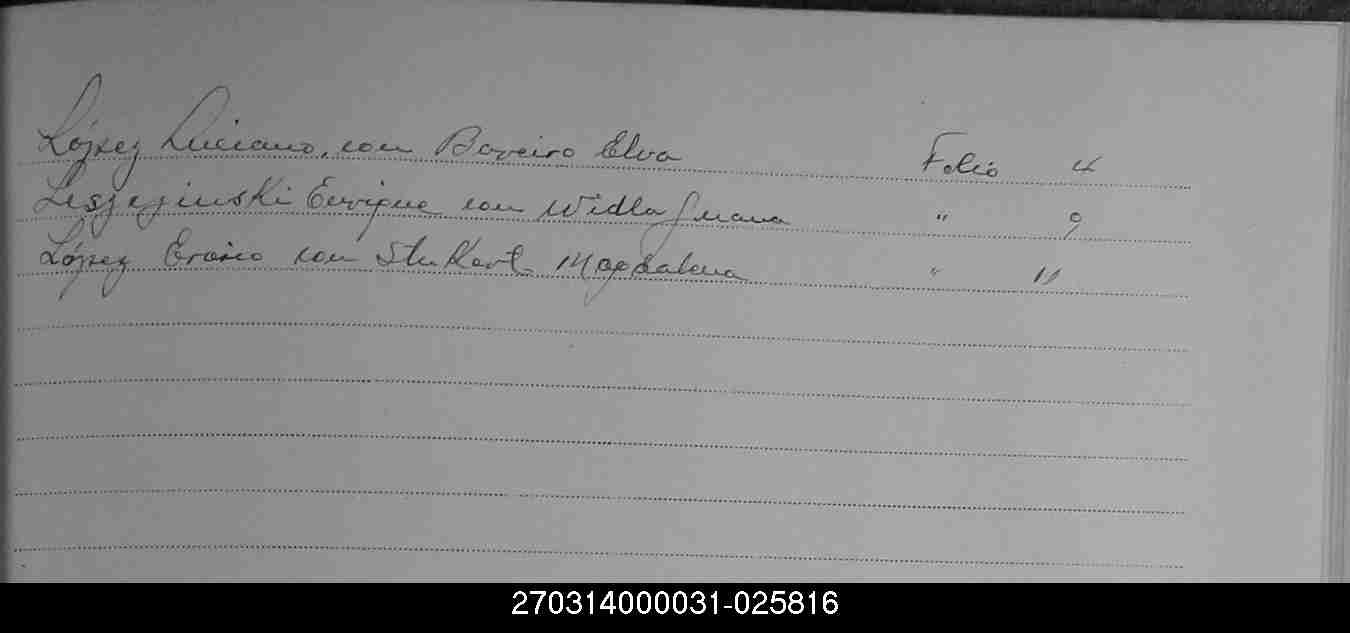 López Luciano, con Boveiro Elva Folio 4
Leszezinski Enrique con Widla Juana " 9
López Erasio con Stukart Magdalena " 11
270314000031-025816